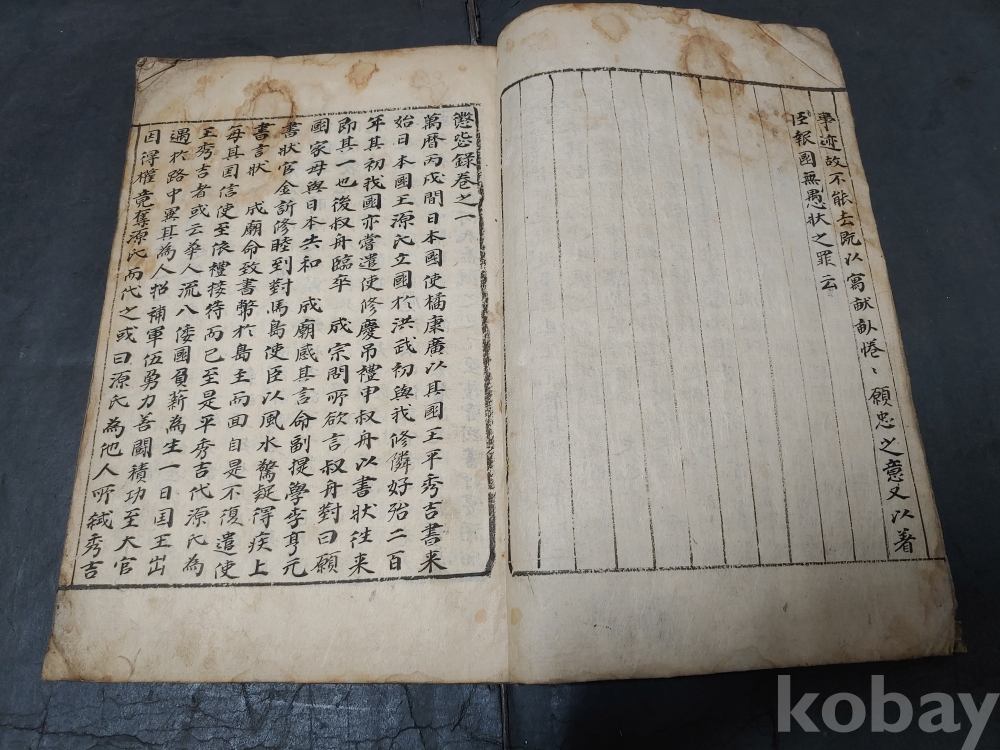 事迹故不能去既以寫献畝惓〻願忠之意又以著
臣報國無愚状之罪云
懲毖録卷之一
萬曆丙戌間日本國使橘康廣以其國王平秀吉書来
始日本國王源氏立國於洪武初與我修隣好殆二百
年其初我國亦嘗遣使修慶吊禮申叔舟以書狀往来
即其一也後叔舟臨卒 成宗問所欲言叔舟對曰願
國家毋與日本失和 成廟感其言命副提學李亨元
書狀官金訢修睦到對馬島使臣以風水驚疑得疾上
書言狀 成廟命致書幣於島主而回自是不復遣使
每其国信使至依禮接待而已至是平秀吉代源氏為
王秀吉者或云华人流入倭國負薪為生一日国王出
遇於路中異其為人招補軍伍勇力善闘積功至大官
因得權竟奪源氏而代之或曰源氏為他人所弑秀吉
kobay